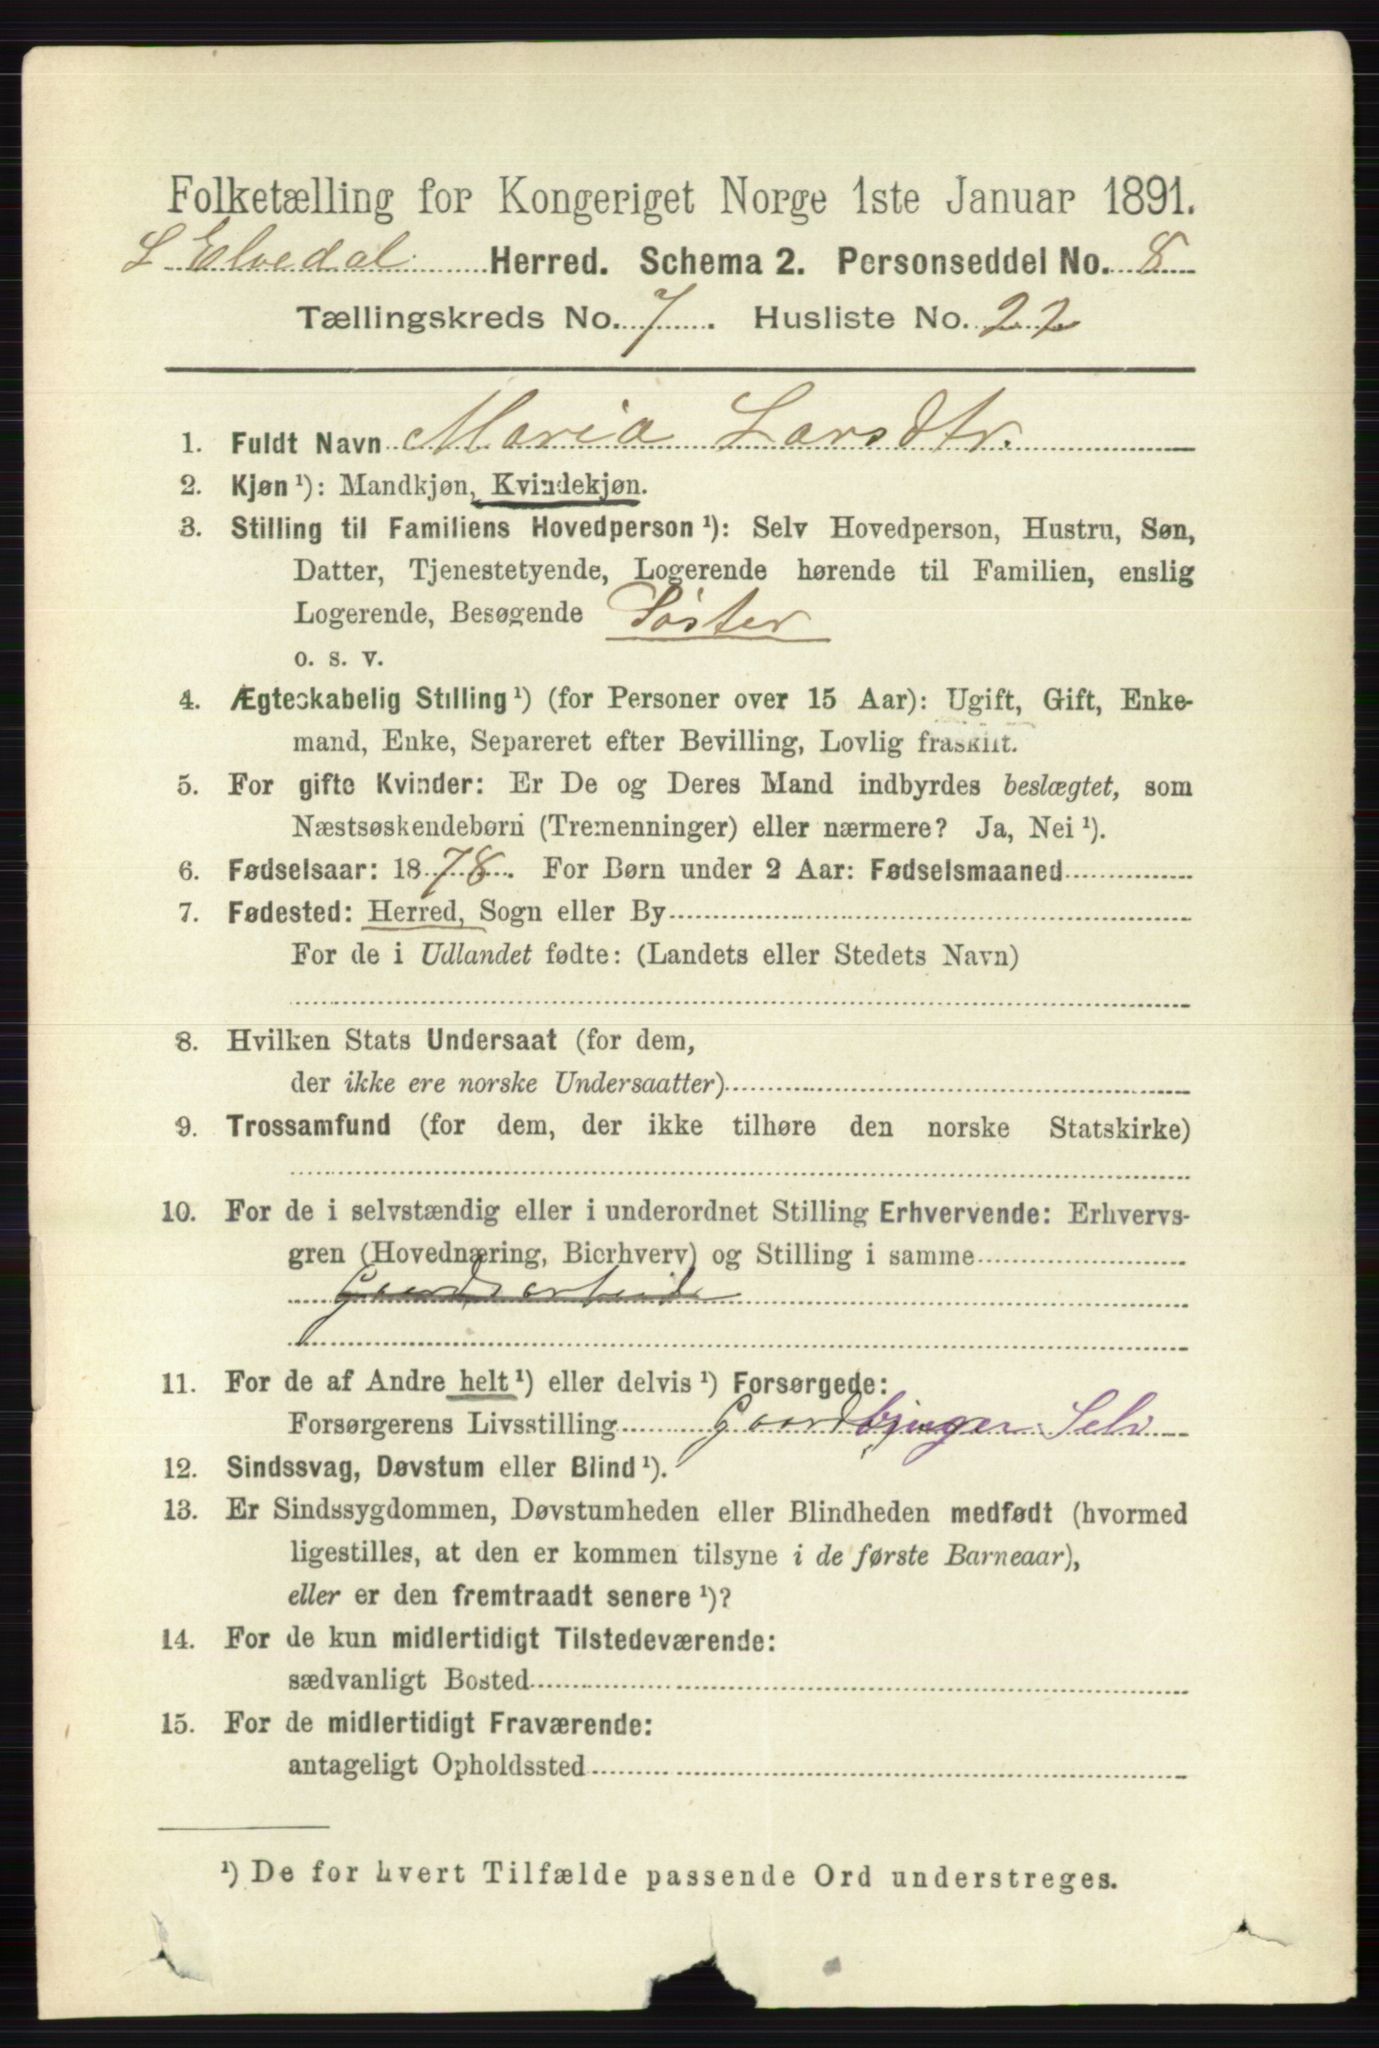 Folketælling for Kongeriget Norge 1ste Januar 1891.
L Elvedal Herred. Schema 2. Personseddel No. 8
Tællingskreds No. 7. Husliste No. 22
1. Fuldt Navn Maria Larsdtr.
2. Kjøn ¹): Mandkjøn, Kvindekjøn.
3. Stilling til Familiens Hovedperson ¹): Selv Hovedperson, Hustru, Søn,
Datter, Tjenestetyende, Logerende hørende til Familien, enslig
Logerende, Besøgende Søster
o. s. v.
4. Ægteskabelig Stilling ¹) (for Personer over 15 Aar): Ugift, Gift, Enke-
mand, Enke, Separeret efter Bevilling, Lovlig fraskilt.
5. For gifte Kvinder: Er De og Deres Mand indbyrdes beslægtet, som
Næstsøskendebørn (Tremenninger) eller nærmere? Ja, Nei ¹).
6. Fødselsaar: 1878. For Børn under 2 Aar: Fødselsmaaned
7. Fødested: Herred, Sogn eller By
For de i Udlandet fødte: (Landets eller Stedets Navn)
8. Hvilken Stats Undersaat (for dem,
der ikke ere norske Undersaatter)
9. Trossamfund (for dem, der ikke tilhøre den norske Statskirke)
10. For de i selvstændig eller i underordnet Stilling Erhvervende: Erhvervs-
gren (Hovednæring, Bierhverv) og Stilling i samme
Gaardsarbeide
11. For de af Andre helt ¹) eller delvis ¹) Forsørgede:
Forsørgerens Livsstilling Gaardbruger Selv
12. Sindssvag, Døvstum eller Blind ¹).
13. Er Sindssygdommen, Døvstumheden eller Blindheden medfødt (hvormed
ligestilles, at den er kommen tilsyne i de første Barneaar),
eller er den fremtraadt senere ¹)?
14. For de kun midlertidigt Tilstedeværende:
sædvanligt Bosted
15. For de midlertidigt Fraværende:
antageligt Opholdssted
¹) De for hvert Tilfælde passende Ord understreges.